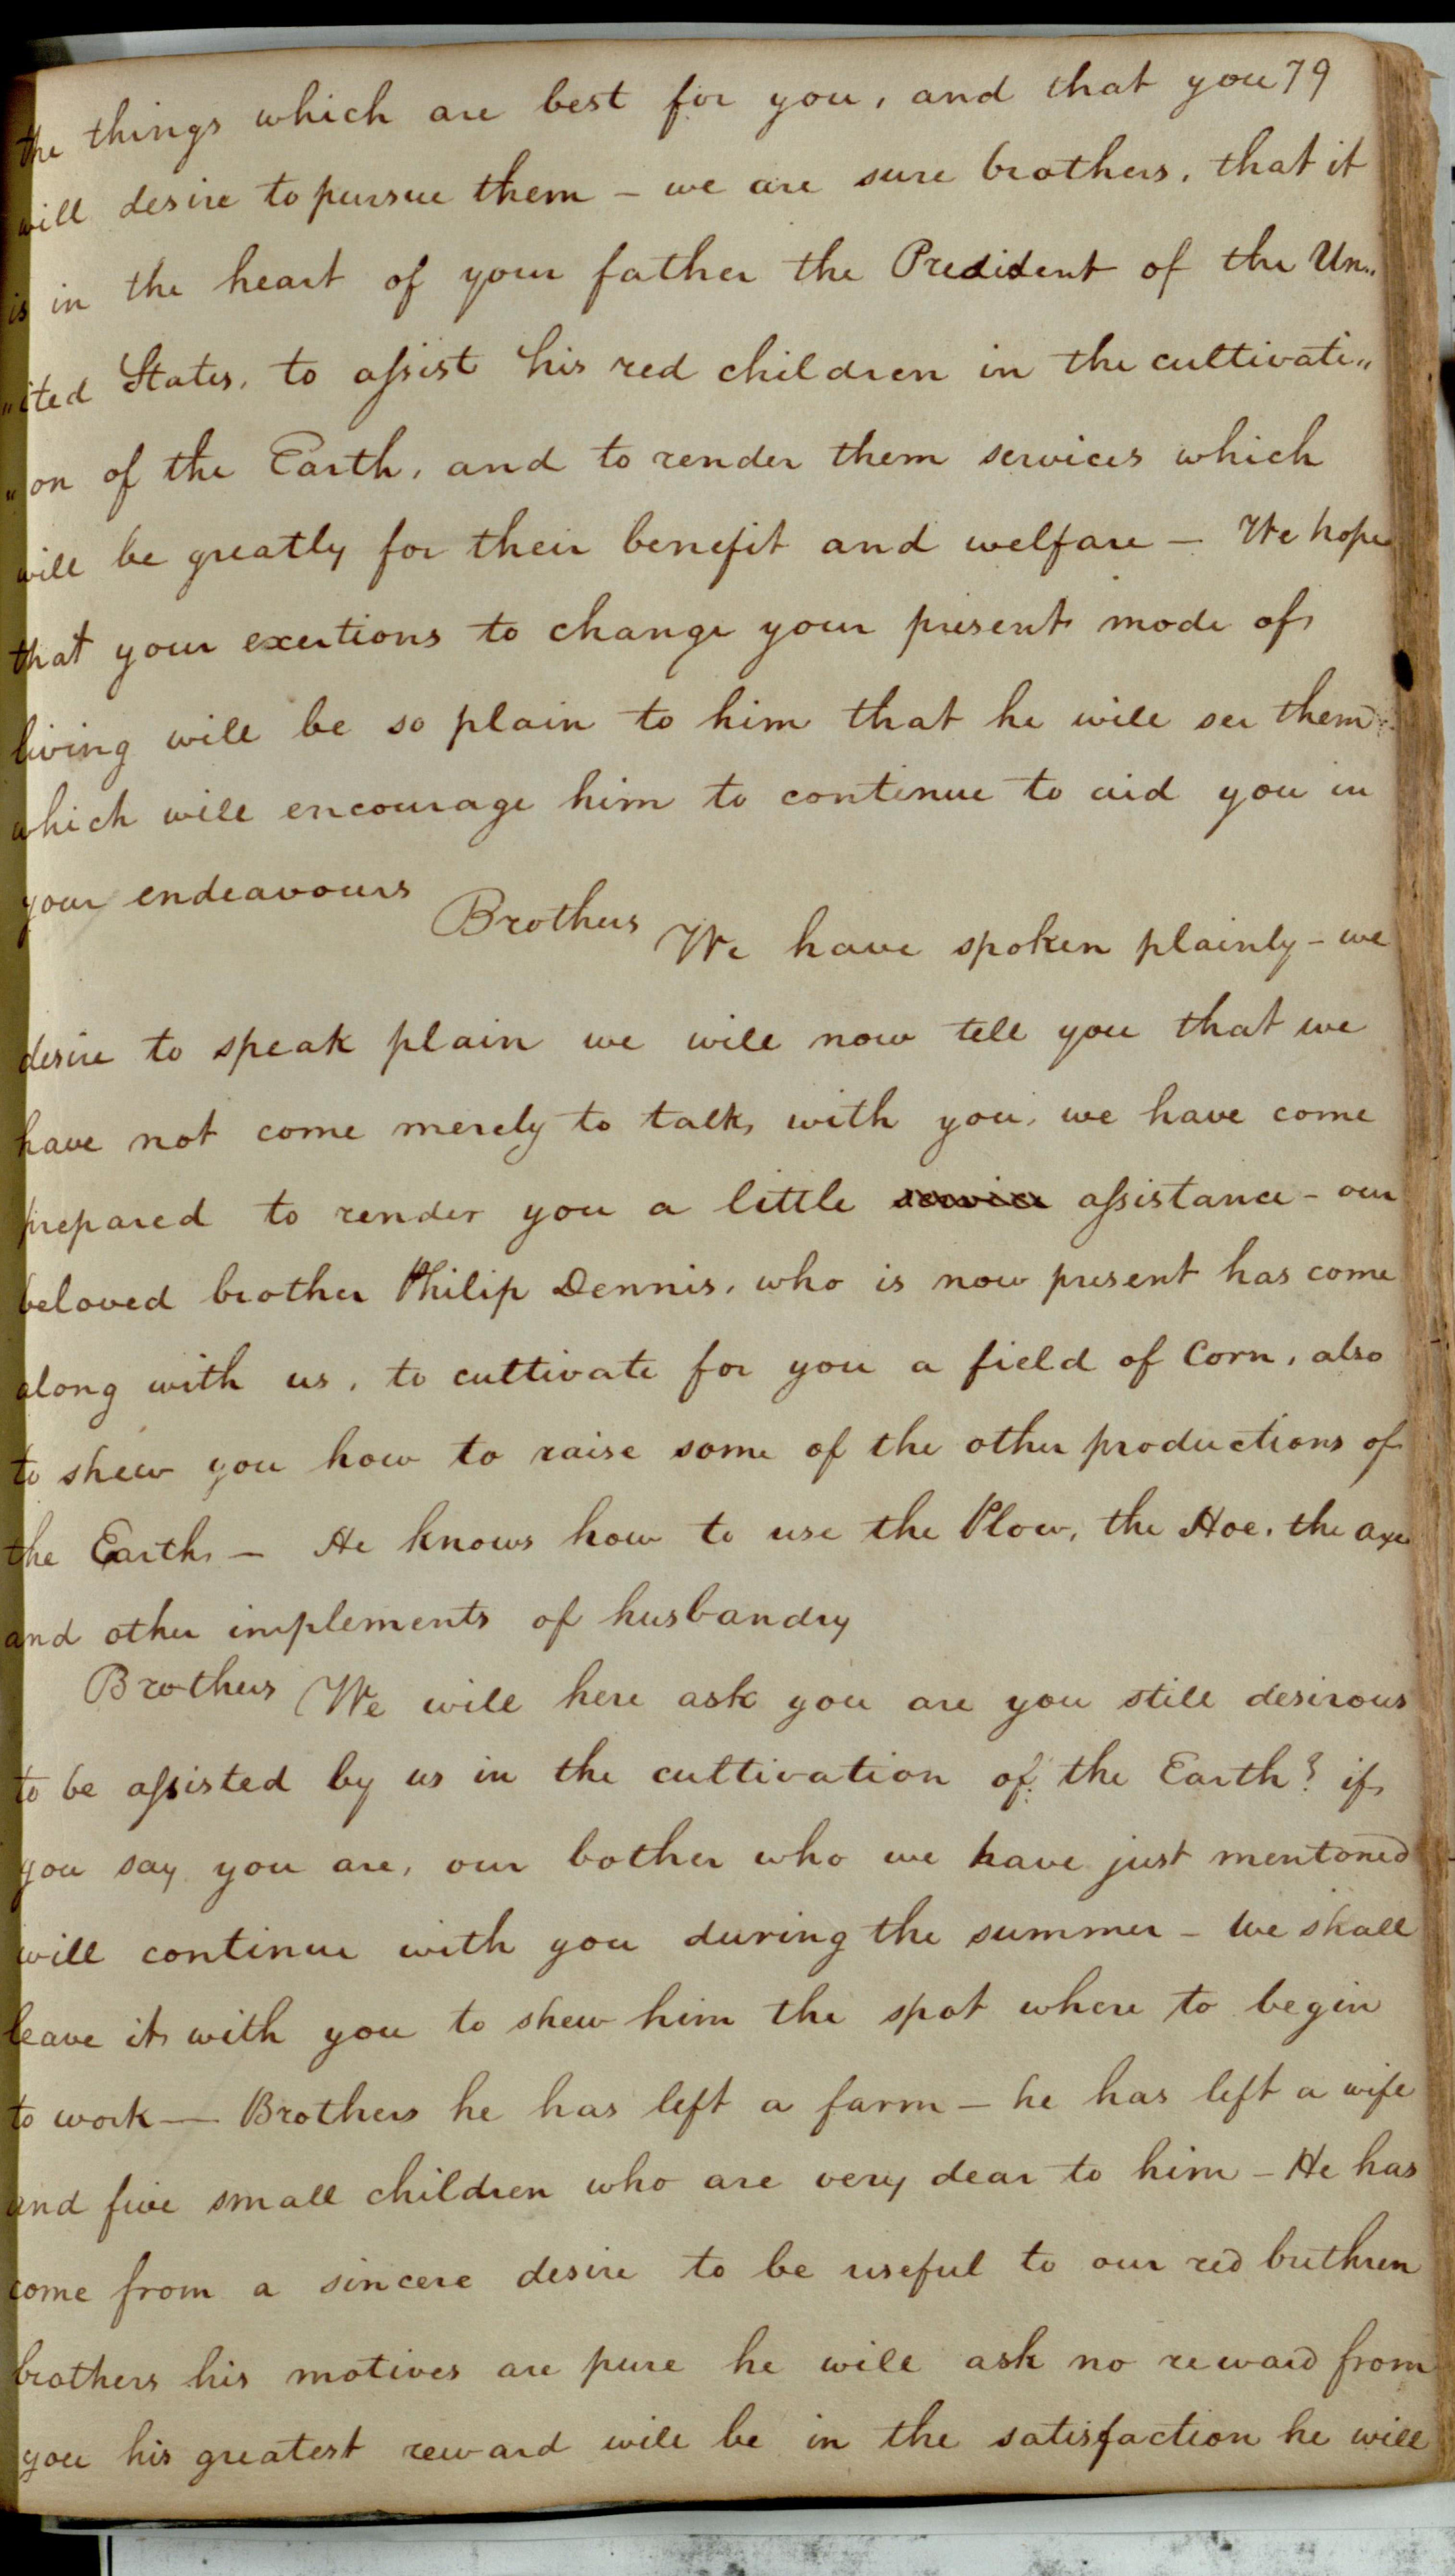 the things which are best for you, and that you 79
will desire to pursue them - we are sure brothers, that it
is in the heart of your father the Predident of the Un„
„ited States, to assist his red children in the cultivati„
„on of the Earth, and to render them services which
will be greatly for their benefit and welfare - We hope
that your exertions to change your present mode of
living will be so plain to him that he will see them
which will encourage him to continue to aid you in
your endeavours
Brothers We have spoken plainly - we
desire to speak plain we will now tell you that we
have not come merely to talk with you, we have come
prepared to render you a little service assistance - our
beloved brother Philip Dennis, who is now present has come
along with us, to cultivate for you a field of Corn, also
to shew you how to raise some of the other productions of
the Earth - He knows how to use the Plow, the Hoe, the axe
and other implements of husbandry
Brothers We will here ask you are you still desirous
to be assisted by us in the cultivation of the Earth? if
you say you are, our bother who we have just mentoned
will continue with you during the summer - we shall
leave it with you to shew him the spot where to begin
to work — Brothers he has left a farm - he has left a wife
and five small children who are very dear to him - He has
come from a sincere desire to be useful to our red brethren
brothers his motives are pure he will ask no reward from
you his greatest reward will be in the satisfaction he will